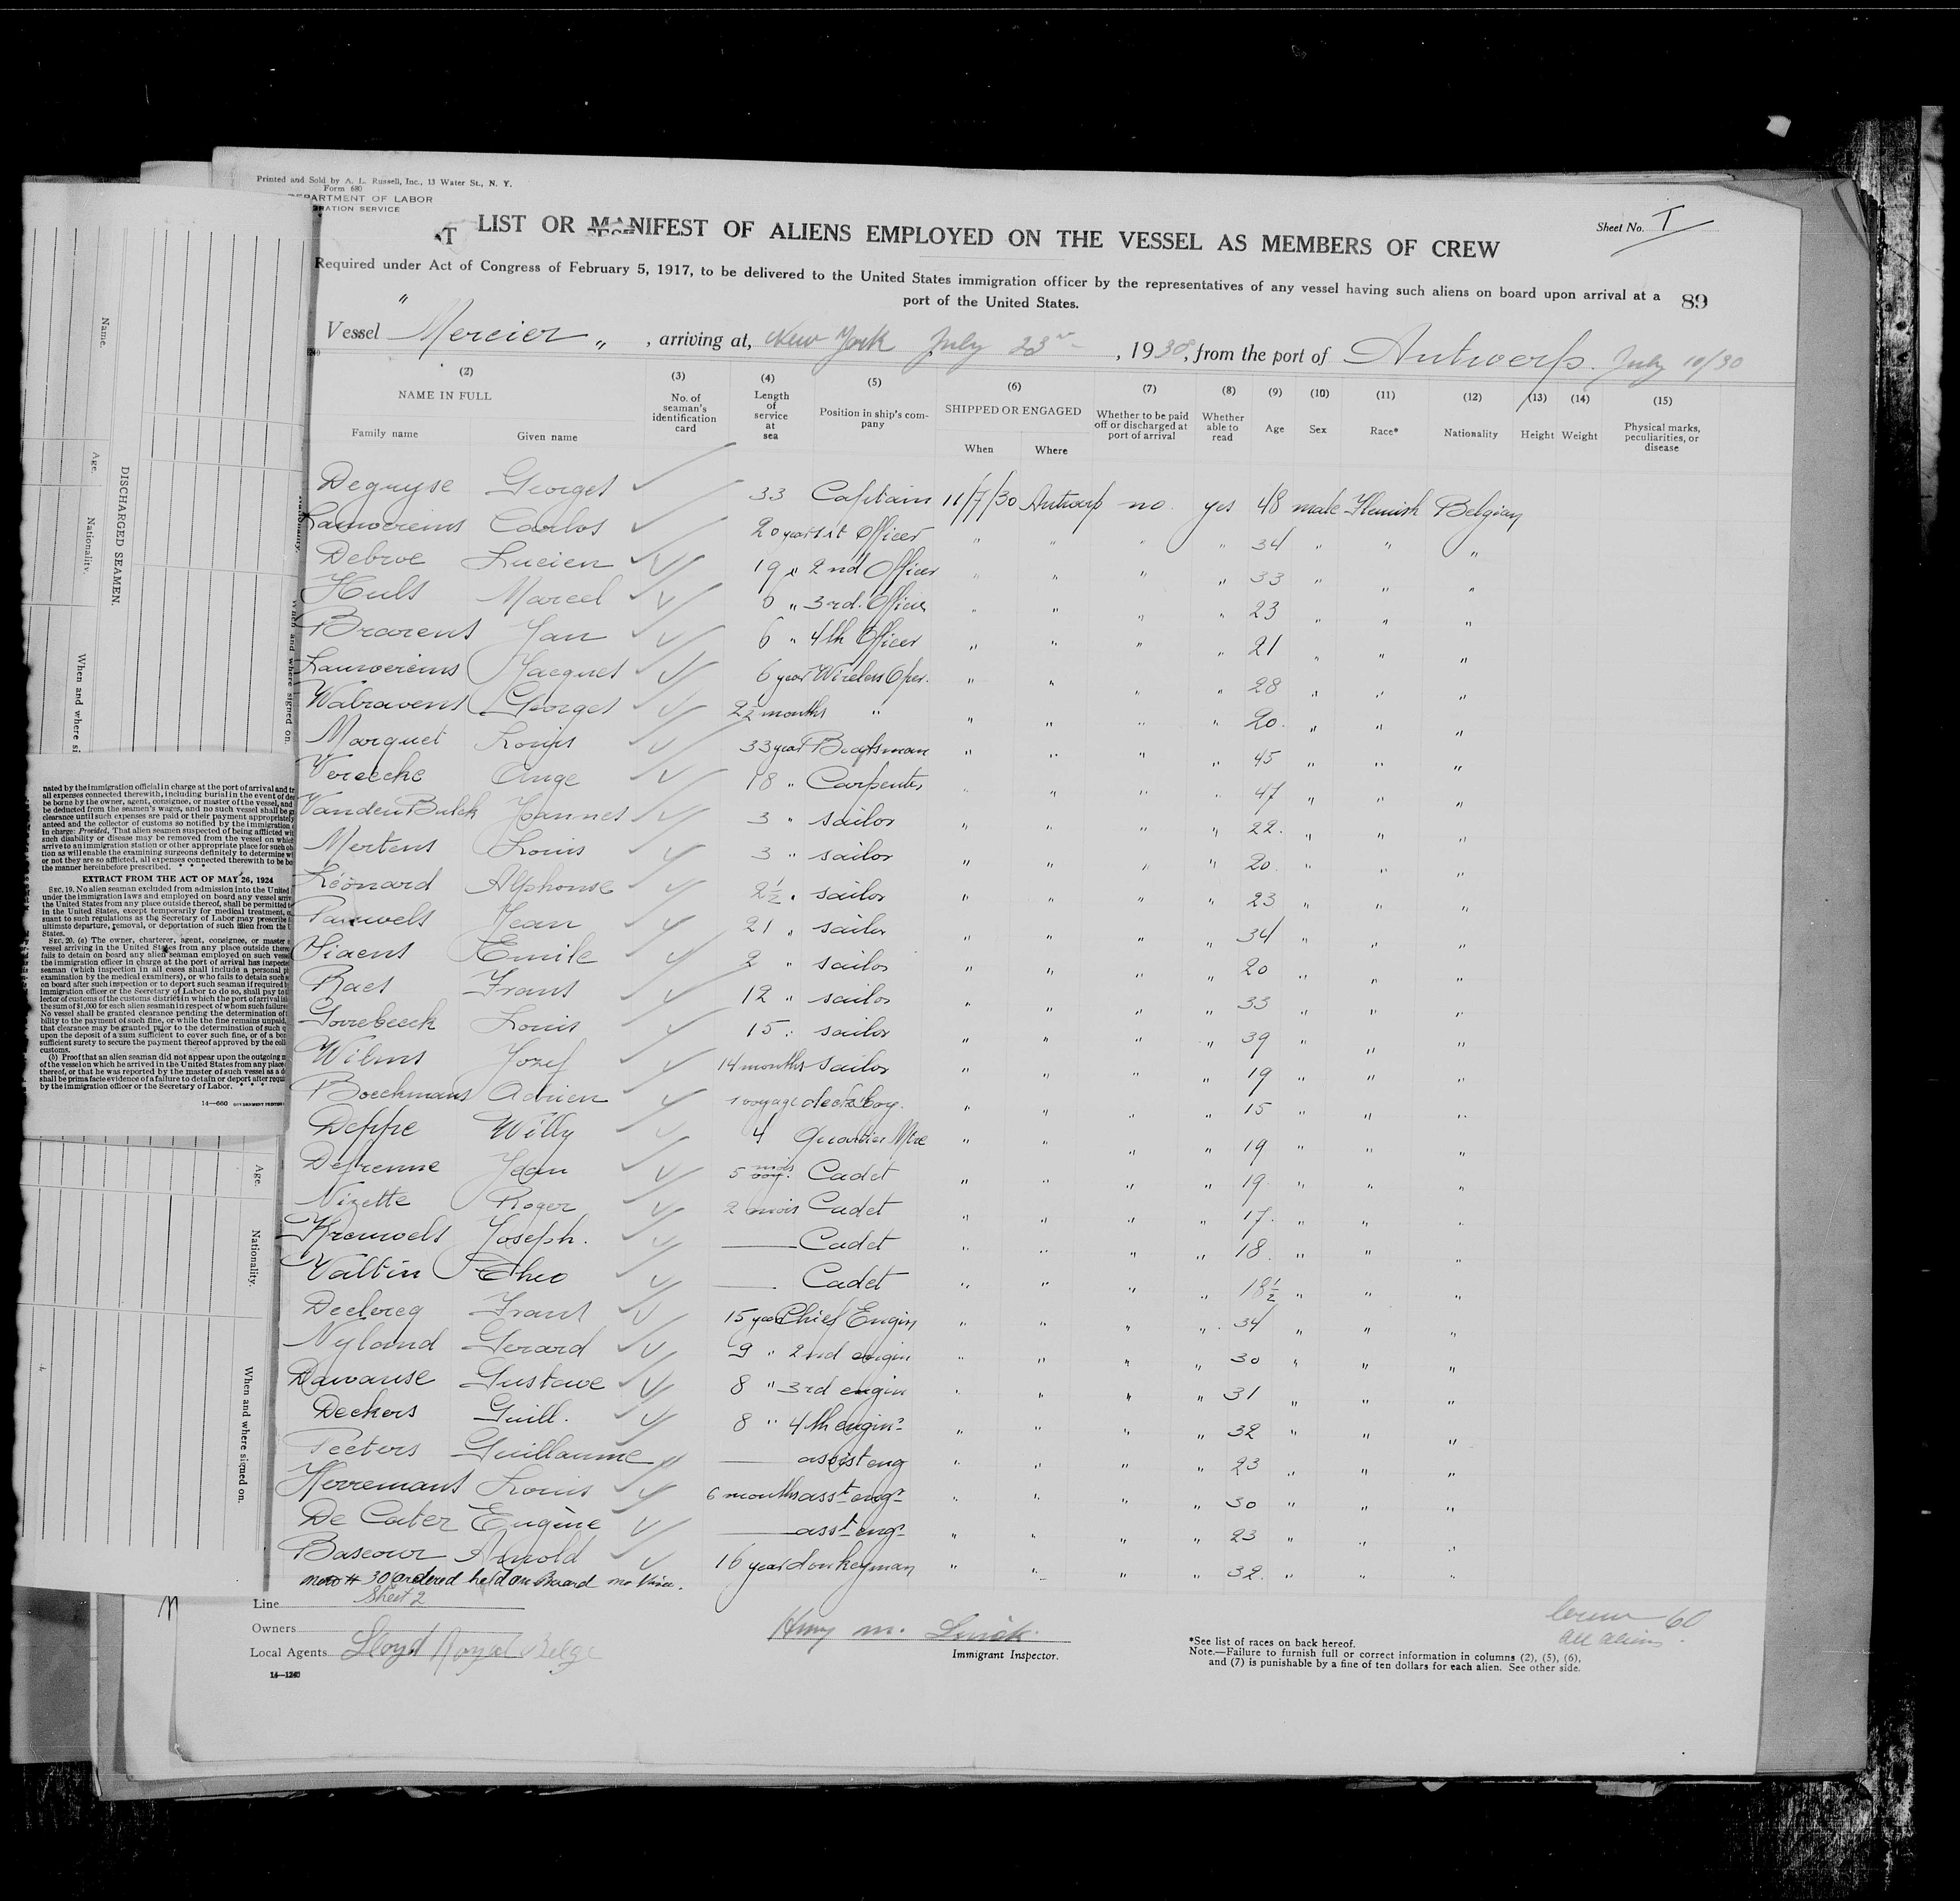 Printed and Sold by A. L. Russell, Inc., 13 Water St., N. Y.
Form 680
DEPARTMENT OF LABOR
GRATION SERVICE
Sheet No. I
LIST OR MANIFEST OF ALIENS EMPLOYED ON THE VESSEL AS MEMBERS OF CREW
Required under Act of Congress of February 5, 1917, to be delivered to the United States immigration officer by the representatives of any vessel having such aliens on board upon arrival at a
port of the United States.
89
Vessel "Mercier", arriving at, New York July 23rd, 1930, from the port of Antwerp. July 10/30
(2) (3) (4) (5) (6) (7) (8) (9) (10) (11) (12) (13) (14) (15)
NAME IN FULL No. of seaman's identification card Length of service at sea Position in ship's company SHIPPED OR ENGAGED Whether to be paid off or discharged at port of arrival Whether able to read Age Sex Race* Nationality Height Weight Physical marks, peculiarities, or disease
Family name Given name When Where
Deguyse Georges 33 Captain 11/7/30 Antwerp no. yes 48 male Flemish Belgian
Lauwereins Carlos 20 years 1st Officer " " " " 34 " " "
Debroe Lucien 19 " 2nd Officer " " " " 33 " " "
Huls Marcel " 3rd. Officer " " " " 23 " " "
Brarens Jan 6 " 4th Officer " " " " 21 " " "
Lauwereins Jacques 6 year Wireless Oper. " " " " 28 " " "
Walravens Georges 2½ months " " " " " 20. " " "
Marquet Louis 33 year Boatsman " " " " 45 " " "
Vereecke Ange 18 " Carpenter " " " " 47 " " "
Vanden Bulck Joannes 3 " sailor " " " " 22. " " "
Mertens Louis 3 " sailor " " " " 20. " " "
Léonard Alphonse 2½ " sailor " " " " 23 " " "
Pauwels Jean 21 " sailor " " " " 34 " " "
Emile 2 " sailor " " " " 20 " " "
Raes Frans 12 " sailor " " " " 33 " " "
Gorrebeeck Louis 15 " sailor " " " " 39 " " "
Wilms Jozef 14 months sailor " " " " 19 " " "
Boeckmans Adrien 1 voyage deck boy. " " " " 15 " " "
Deppe Willy 4 Quartier Mre " " " " 19 " " "
Defrenne Jean 5 mois Cadet " " " " 19. " " "
Nizette Roger 2 mois Cadet " " " " 17. " " "
Joseph. Cadet " " " " 18. " " "
Valtin Theo Cadet " " " " 18½ " " "
Declercq Frans 15 year Chief Engin " " " " 34 " " "
Nyland Gerard 9 " 2nd engin " " " " 30 " " "
Dawanse Gustave 8 " 3rd engin " " " " 31 " " "
Deckers Guill. 8 " 4th enginr " " " " 32 " " "
Peeters Guillaume assist eng " " " " 23 " " "
Herremans Louis 6 months asst engr " " " " 30 " " "
De Cater Eugène asst engr " " " " 23 " " "
Basecour Arnold 16 year donkeyman " " " " 32. " " "
# 30 ordered held on Board no Visa.
Sheet 2
Line
Owners
Local Agents Lloyd Royal Belge
14—1240
Henry M.
Immigrant Inspector.
60
all aliens.
*See list of races on back hereof.
Note.—Failure to furnish full or correct information in columns (2), (5), (6),
and (7) is punishable by a fine of ten dollars for each alien. See other side.
Name.
Age.
Nationality.
DISCHARGED SEAMEN.
When and where si
Nationality.
When and where signed on.
nated by the immigration official in charge at the port of arrival and tr
all expenses connected therewith, including burial in the event of de
be borne by the owner, agent, consignee, or master of the vessel, and
be deducted from the seamen's wages, and no such vessel shall be g
clearance until such expenses are paid or their payment appropriately
anteed and the collector of customs so notified by the immigration
in charge: Provided, That alien seamen suspected of being afflicted wi
such disability or disease may be removed from the vessel on which
arrive to an immigration station or other appropriate place for such ob
tion as will enable the examining surgeons definitely to determine w
or not they are so afflicted, all expenses connected therewith to be bo
the manner hereinbefore prescribed. * * *
EXTRACT FROM THE ACT OF MAY 26, 1924
SEC. 19. No alien seaman excluded from admission into the United
under the immigration laws and employed on board any vessel arriv
the United States from any place outside thereof, shall be permitted t
in the United States, except temporarily for medical treatment, o
suant to such regulations as the Secretary of Labor may prescribe
ultimate departure, removal, or deportation of such alien from the U
States.
SEC. 20. (a) The owner, charterer, agent, consignee, or master
vessel arriving in the United States from any place outside there
fails to detain on board any alien seaman employed on such vesse
the immigration officer in charge at the port of arrival has inspecte
seaman (which inspection in all cases shall include a personal p
examination by the medical examiners), or who fails to detain such s
on board after such inspection or to deport such seaman if required b
immigration officer or the Secretary of Labor to do so, shall pay to
lector of customs of the customs district in which the port of arrival is
the sum of $1,000 for each alien seaman in respect of whom such failure
No vessel shall be granted clearance pending the determination of
bility to the payment of such fine, or while the fine remains unpaid,
that clearance may be granted prior to the determination of such q
upon the deposit of a sum sufficient to cover such fine, or of a bon
sufficient surety to secure the payment thereof approved by the coll
customs.
(b) Proof that an alien seaman did not appear upon the outgoing m
of the vessel on which he arrived in the United States from any place
thereof, or that he was reported by the master of such vessel as a d
shall be prima facie evidence of a failure to detain or deport after requi
by the immigration officer or the Secretary of Labor. * * *
14—660 GOVERNMENT PRINTING
Age.
Nationality.
When and where signed on.
4